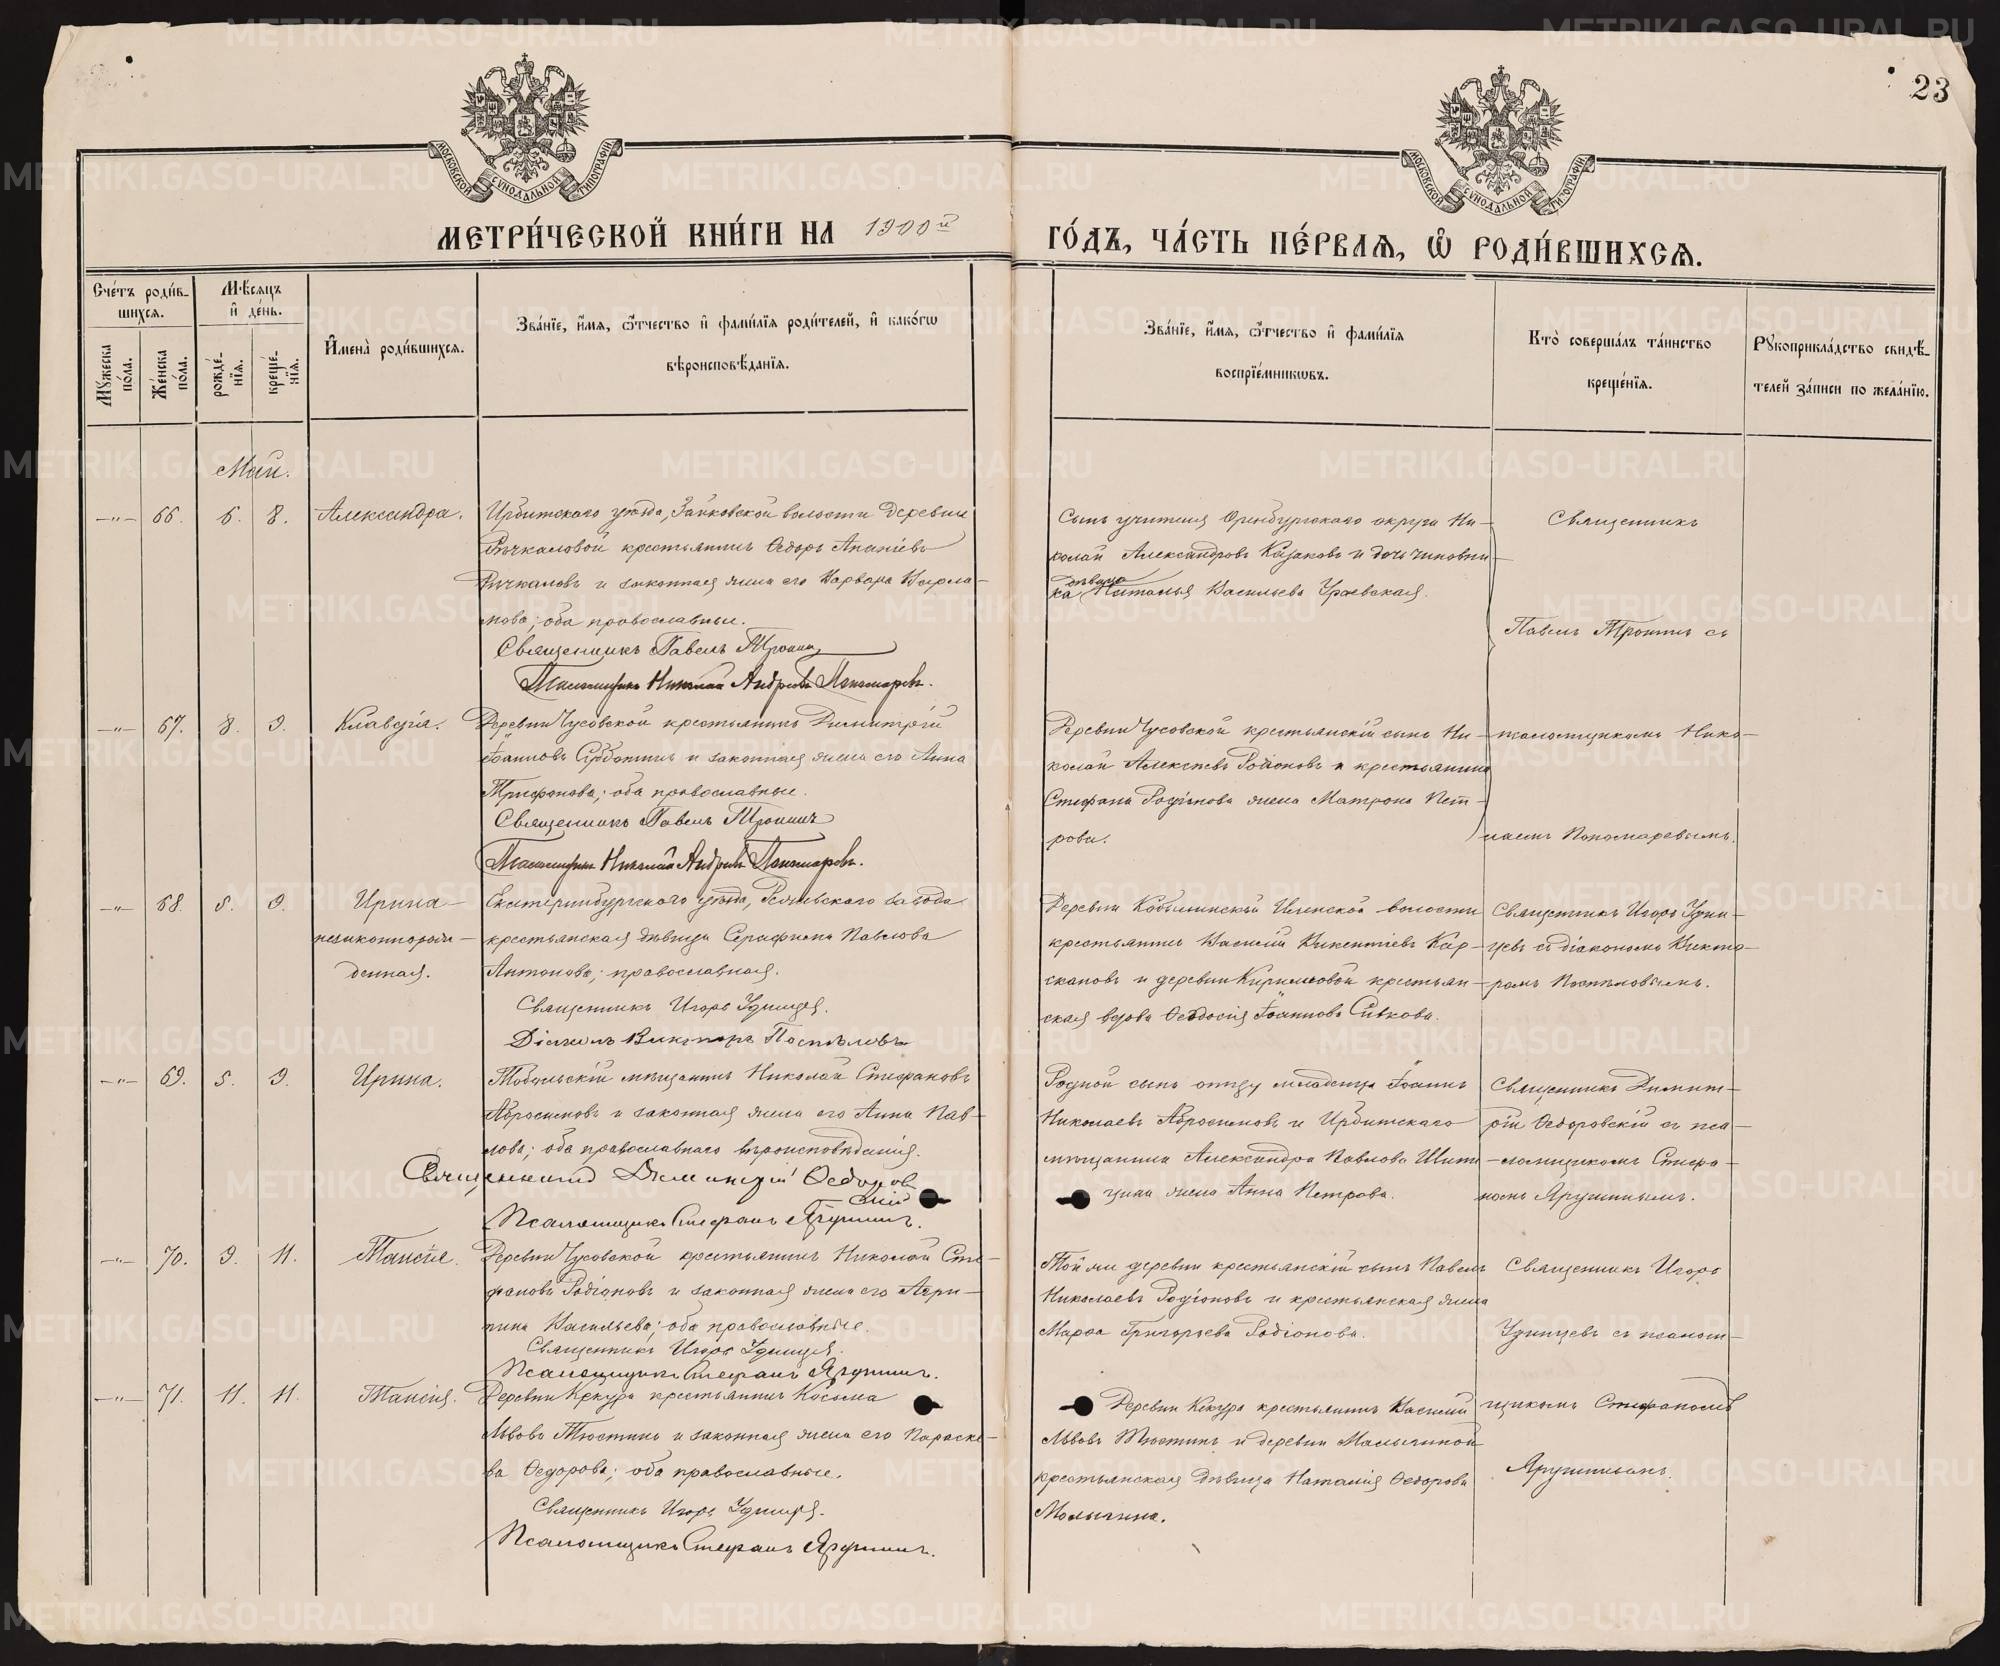 23
МОСКОВСКОЙ СѴНОДАЛЬНОЙ ТИПОГРАФІИ
МОСКОВСКОЙ СѴНОДАЛЬНОЙ ТИПОГРАФІИ
МЕТРИ́ЧЕСКОЙ КНИ́ГИ НА 1900й ГО́ДЪ, ЧА́СТЬ ПЕ́РВАѦ, Ѡ҆ РОДИ́ВШИХСѦ.
Сче́тъ роди́в-
шихсѧ.
Мꙋ́жеска по́ла.
Же́нска по́ла.
Мѣ́сѧцъ и҆ де́нь.
рожде́-
нїѧ.
креще́-
нїѧ.
И҆мена̀ роди́вшихсѧ.
Зва́нїе, и҆́мѧ, ѻ҆́тчество и҆ фами́лїѧ роди́телей, и҆ како́гѡ
вѣроисповѣ́данїѧ.
Зва́нїе, и҆́мѧ, ѻ҆́тчество и҆ фами́лїѧ
воспрїе́мникѡвъ.
Кто̀ соверша́лъ та́инство
креще́нїѧ.
Рꙋкоприкла́дство свидѣ́-
телей за́писи по жела́нїю.
Май.
—"— 66. 6. 8. Александра.
Ирбитскаго уѣзда, Зайковской волости деревни
Рычкаловой крестьянинъ Ѳедоръ Ананіевъ
Рычкаловъ и законная жена его Варвара Варла-
мова; оба православные.
Священникъ Павелъ Тронинъ
Псаломщикъ Николай Андреевъ Пономаревъ.
Сынъ учителя Оренбургскаго округа Ни-
колай Александровъ Казаковъ и дочь чиновни-
ка девица Наталья Васильева
Священникъ
Павелъ Тронинъ съ
—"— 67. 8. 9. Клавдія.
Деревни Чусовской крестьянинъ Димитрій
Іоанновъ Субботинъ и законная жена его Анна
Трифонова; оба православные.
Священникъ Павелъ Тронинъ
Псаломщикъ Николай Андреевъ Пономаревъ.
Деревни Чусовской крестьянскій сынъ Ни-
колай Алексѣевъ Родіоновъ и крестьянина
Стефана Родіонова жена Матрона Пет-
рова.
псаломщикомъ Нико-
лаемъ Пономаревымъ.
—"— 68. 5. 9. Ирина
незаконнорож-
денная.
Екатеринбургскаго уѣзда, Режевскаго завода
крестьянская дѣвица Серафима Павлова
Антонова; православная.
Священникъ Игорь Удинцев.
Діаконъ Викторъ Поспѣловъ
волости
крестьянинъ Василій Викентіевъ
и деревни Кирилловой крестьян-
ская вдова Ѳеодосія Іоаннова Сивкова.
Священникъ Игорь Удин-
цевъ съ діакономъ Викто-
ромъ Поспѣловымъ.
—"— 69. 5. 9. Ирина.
Тобольскій мѣщанинъ Николай Стефановъ
Абросимовъ и законная жена его Анна Пав-
лова; оба православнаго вѣроисповѣданія.
Священникъ Димитрій Ѳедоров
скій
Псаломщикъ Стефанъ Ярушинъ.
Родной сынъ отцу младенца Іоаннъ
Николаевъ Абросимовъ и Ирбитскаго
мѣщанина Александра Павлова
жена Анна Петрова.
Священникъ Димит-
рій Ѳедоровскій съ пса-
ломщикомъ Стефа-
номъ Ярушинымъ.
—"— 70. 9. 11. Таисія.
Деревни Чусовской крестьянинъ Николай Сте-
фановъ Родіоновъ и законная жена его Агри-
пина Васильева; оба православные.
Священникъ Игорь Удинцев.
Псаломщикъ Стефанъ Ярушинъ.
Той же деревни крестьянскій сынъ Павелъ
Николаевъ Родіоновъ и крестьянская жена
Марѳа Григорьева Родіонова.
Священникъ Игорь
Удинцевъ съ псалом-
—"— 71. 11. 11. Таисія.
Деревни Кекура крестьянинъ Косьма
Львовъ Тюстинъ и законная жена его Параске-
ва Ѳедорова; оба православные.
Священникъ Игорь Удинцев.
Псаломщикъ Стефанъ Ярушинъ.
Деревни Кекура крестьянинъ Василій
Львовъ Тюстинъ и деревни Малыгиной
крестьянская дѣвица Наталія Ѳедорова
Малыгина.
щикомъ Стефаномъ
Ярушинымъ.
METRIKI.GASO-URAL.RU